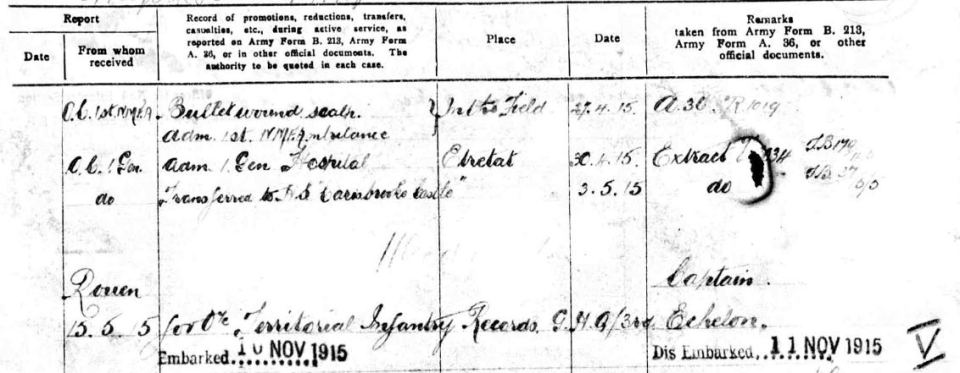 Report
Date
From whom received
Record of promotions, reductions, transfers, casualties, etc., during active service, as reported on Army Form B. 213, Army Form A. 36, or in other official documents. The authority to be quoted in each case.
Place
Date
Remarks taken from Army Form B. 213, Army Form A. 36, or other official documents.
O.C. 1st N.M.F.A. Bullet wound scalp. In the Field 27.4.15 A.36
Adm. 1st N.M.F. Ambulance
O.C. 1 Gen. Adm 1 Gen Hospital Etretat 30.4.15. Extract
do Transferred to H.S "Carisbrooke Castle" 3.5.15 do
Rouen Captain.
15.5.15 for O i/c Territorial Infantry Records G.H.Q/3rd Echelon.
Embarked 10 NOV 1915 Dis Embarked 11 NOV 1915
V